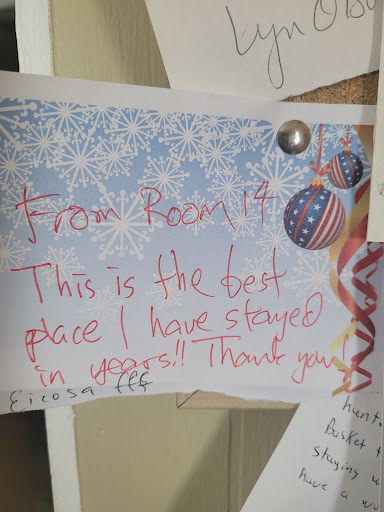 Lyn
From Room 14
This is the best
place I have stayed
in years!! Thank you!
Eicosa fff
hunt
Basket
staying w
have a wo